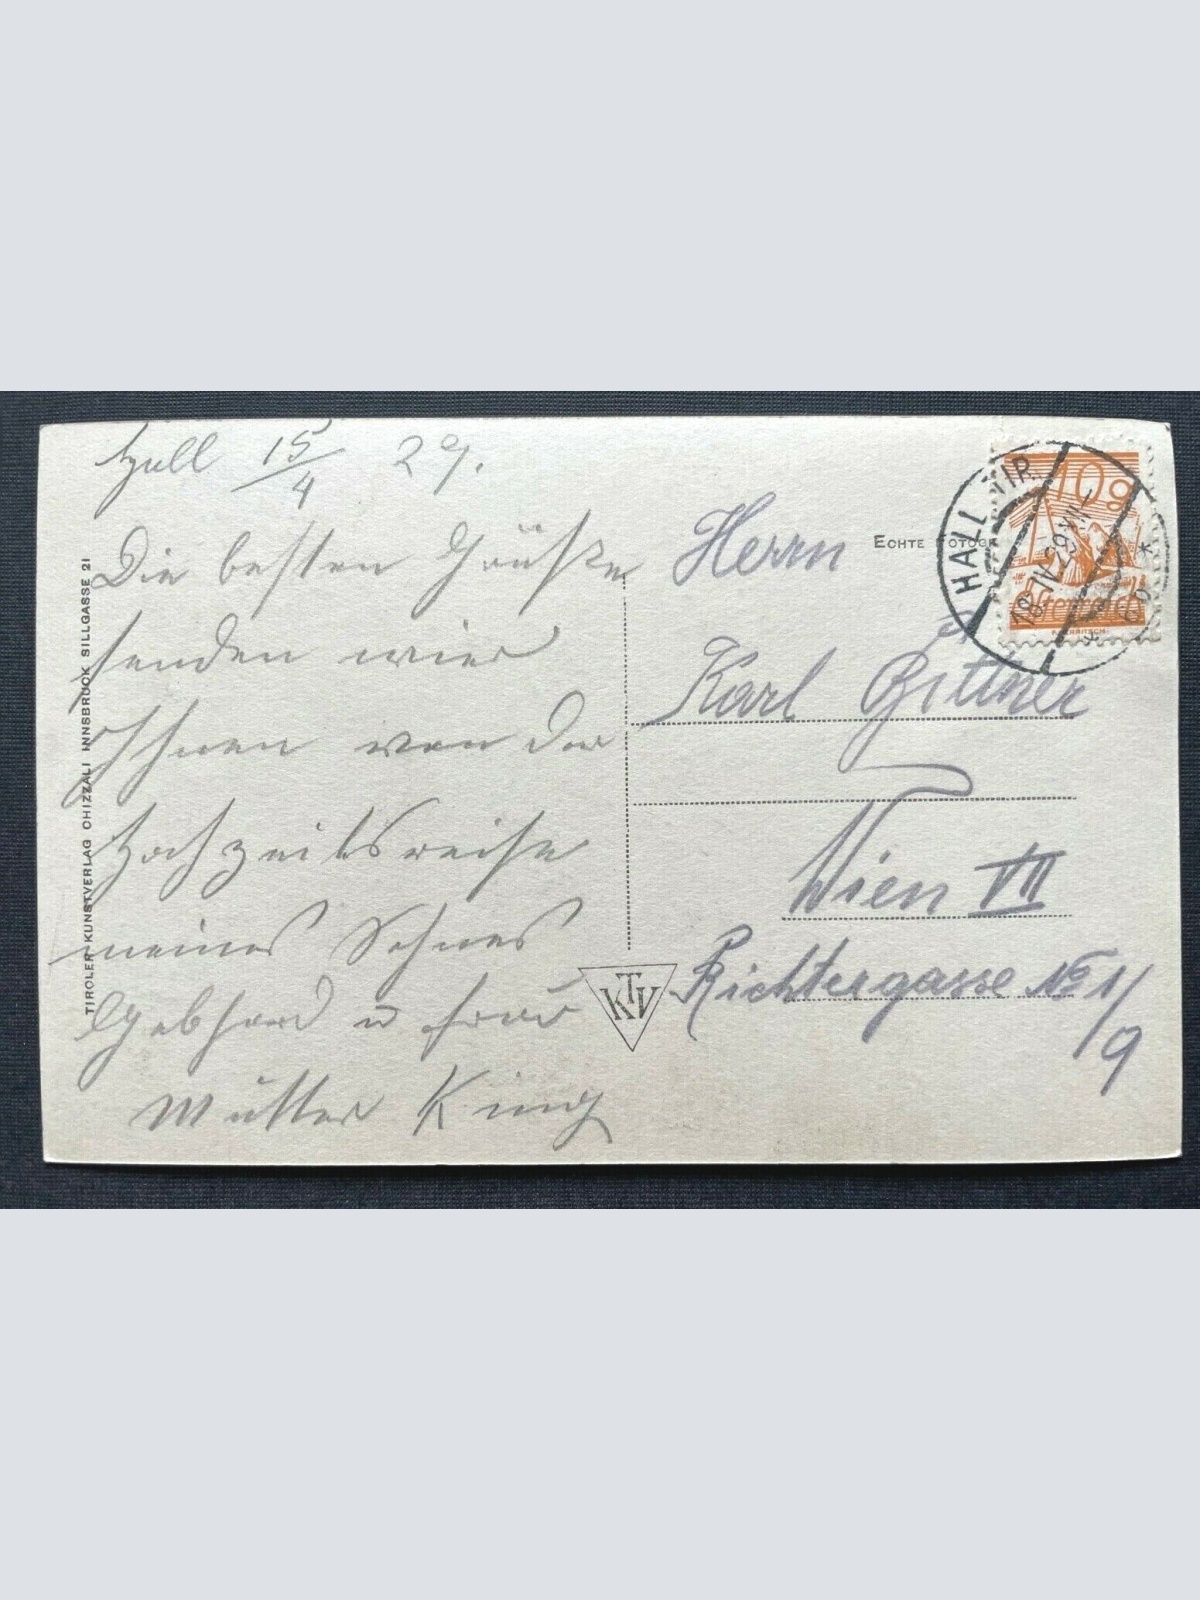 Hall 15/4 29.
Die besten Grüße
senden wier
Ihnen von der
Hochzeitsreise
meines Sohnes
Gebhard u Frau
Mutter King
TIROLER KUNSTVERLAG CHIZZALI INNSBRUCK SILLGASSE 21
KTV
ECHTE FOTOGR
HALL TIR.
18.IV.29
10g
Österreich
Herrn
Karl Bittner
Wien VII
Richtergasse No 1/9